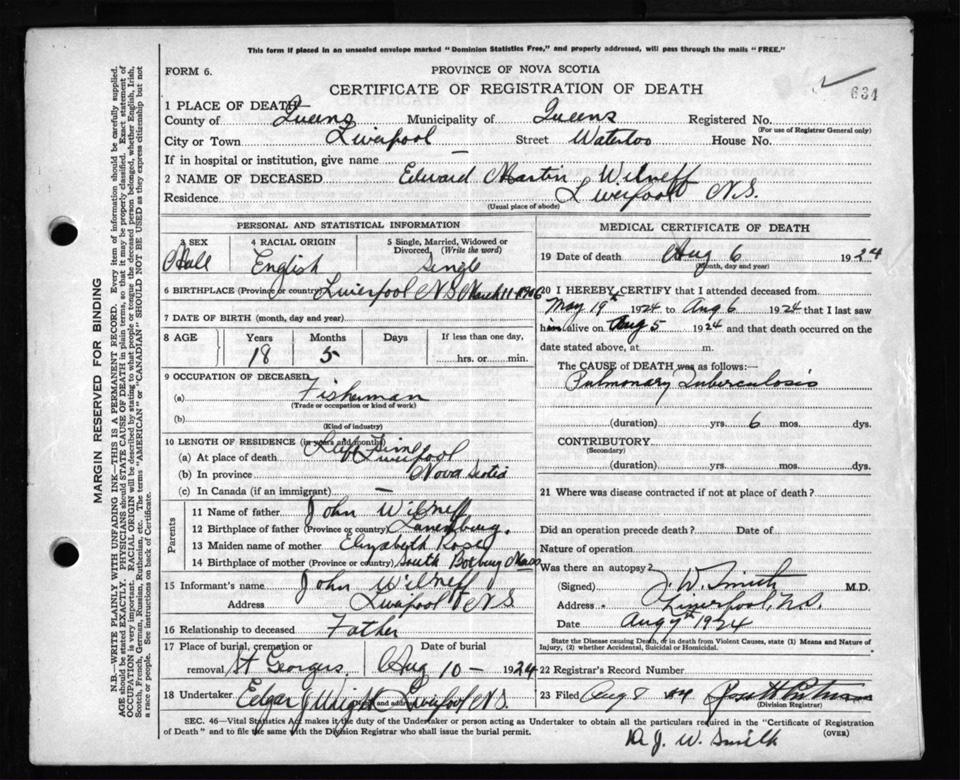 This form if placed in an unsealed envelope marked "Dominion Statistics Free," and properly addressed, will pass through the mails "FREE."
FORM 6.
PROVINCE OF NOVA SCOTIA
634
CERTIFICATE OF REGISTRATION OF DEATH
1 PLACE OF DEATH—
County of Queens Municipality of Queens Registered No.
(For use of Registrar General only)
City or Town Liverpool Street Waterloo House No.
If in hospital or institution, give name —
2 NAME OF DECEASED Edward Martin Wilneff
Residence Liverpool N.S.
(Usual place of abode)
PERSONAL AND STATISTICAL INFORMATION
3 SEX 4 RACIAL ORIGIN 5 Single, Married, Widowed or Divorced, (Write the word)
Male English Single
6 BIRTHPLACE (Province or country) Liverpool N S March 11 1906
7 DATE OF BIRTH (month, day and year)
8 AGE Years Months Days If less than one day,
18 5 hrs. or min.
9 OCCUPATION OF DECEASED
(a) Fisherman
(Trade or occupation or kind of work)
(b)
(Kind of industry)
10 LENGTH OF RESIDENCE (in years and months)
(a) At place of death Liverpool
(b) In province Nova Scotia
(c) In Canada (if an immigrant) —
Parents
11 Name of father John Wilneff
12 Birthplace of father (Province or country) Lunenburg.
13 Maiden name of mother Elizabeth Rose
14 Birthplace of mother (Province or country) South Mass
15 Informant's name John Wilneff
Address Liverpool N.S.
16 Relationship to deceased Father
17 Place of burial, cremation or removal Date of burial
St Georges, Aug 10 - 1924
18 Undertaker Edgar J Wright Liverpool N.S.
(Name and address)
MEDICAL CERTIFICATE OF DEATH
19 Date of death Aug 6 1924
(Month, day and year)
20 I HEREBY CERTIFY that I attended deceased from
May 19th 1924 to Aug 6 1924 that I last saw
him alive on Aug 5 1924 and that death occurred on
date stated above, at m.
The CAUSE of DEATH was as follows:—
Pulmonary Tuberculosis
(duration) yrs. 6 mos. dys.
CONTRIBUTORY
(Secondary)
(duration) yrs. mos. dys.
21 Where was disease contracted if not at place of death?
Did an operation precede death? Date of
Nature of operation
Was there an autopsy?
(Signed) J. W. Smith M.D.
Address Liverpool, N.S.
Date Aug 7th 1924
State the Disease causing Death, or in death from Violent Causes, state (1) Means and Nature of
Injury, (2) whether Accidental, Suicidal or Homicidal.
22 Registrar's Record Number
23 Filed Aug 8 24
(Division Registrar)
SEC. 46—Vital Statistics Act makes it the duty of the Undertaker or person acting as Undertaker to obtain all the particulars required in the "Certificate of Registration
of Death" and to file the same with the Division Registrar who shall issue the burial permit.
(OVER)
Dr J. W. Smith
MARGIN RESERVED FOR BINDING
N.B.—WRITE PLAINLY WITH UNFADING INK—THIS IS A PERMANENT RECORD. Every item of information should be carefully supplied.
AGE should be stated EXACTLY. PHYSICIANS should STATE CAUSE OF DEATH in plain terms, so that it may be properly classified. Exact statement of
OCCUPATION is very important. RACIAL ORIGIN will be described by stating to what people or tongue the deceased person belonged, whether English, Irish,
Scotch, French, German, Russian, Ruthenian, etc. The terms "AMERICAN" or "CANADIAN" SHOULD NOT BE USED as they express citizenship but not
a race or people. See instructions on back of Certificate.